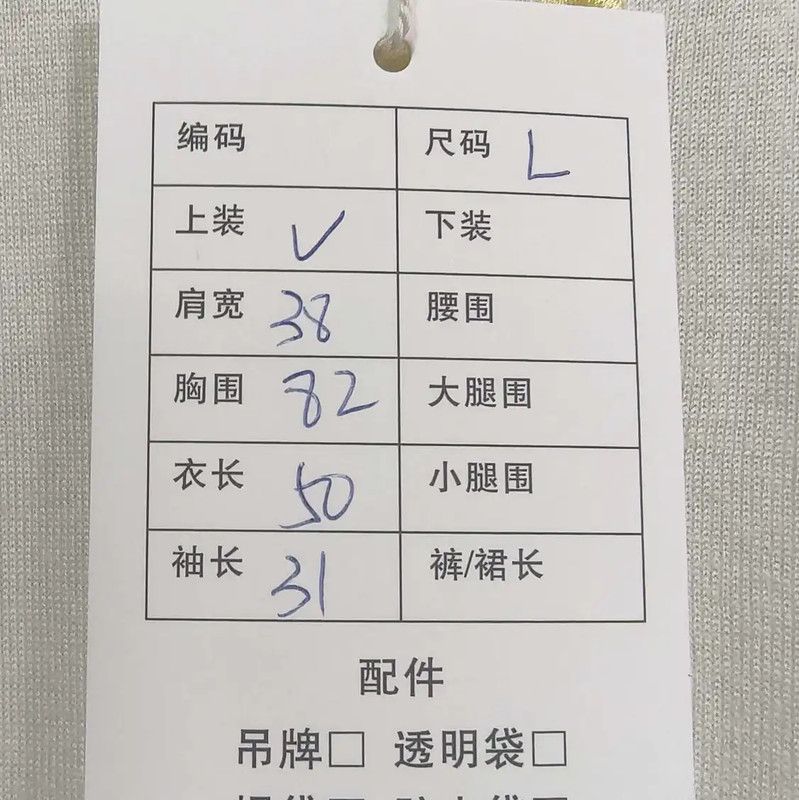 编码 尺码 L
上装 ✓ 下装
肩宽 38 腰围
胸围 82 大腿围
衣长 50 小腿围
袖长 31 裤/裙长
配件
吊牌□ 透明袋□